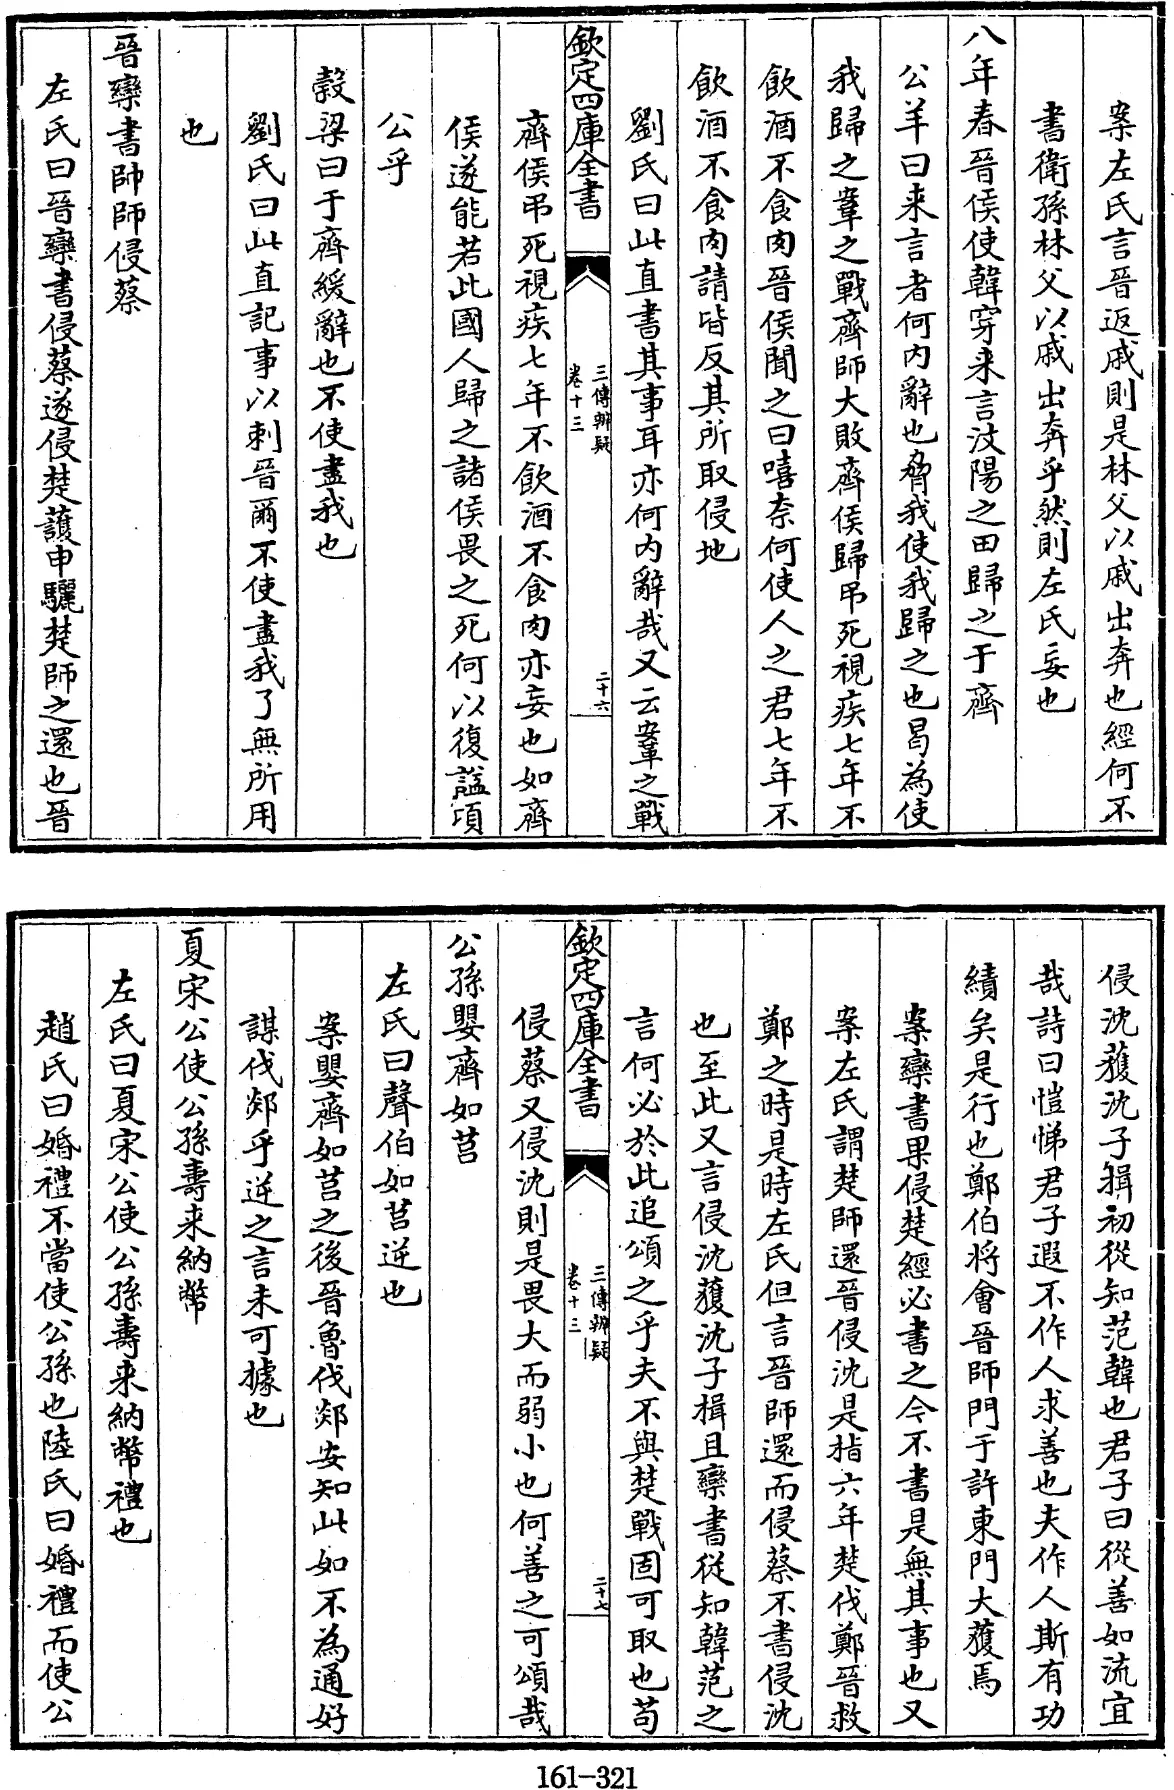 案左氏言晉返戚則是林父以戚出奔也經何不
書衛孫林父以戚出奔乎然則左氏妄也
八年春晉侯使韓穿来言汶陽之田歸之于齊
公羊曰来言者何内辭也脅我使我歸之也曷為使
我歸之鞌之戰齊師大敗齊侯歸弔死視疾七年不
飲酒不食肉晉侯聞之曰嘻奈何使人之君七年不
飲酒不食肉請皆反其所取侵地
劉氏曰此直書其事耳亦何内辭哉又云鞌之戰
欽定四庫全書
三傳辨疑
卷十三
二十六
齊侯弔死視疾七年不飲酒不食肉亦妄也如齊
侯遂能若此國人歸之諸侯畏之死何以復謚項
公乎
穀梁曰于齊緩辭也不使盡我也
劉氏曰此直記事以刺晉爾不使盡我了無所用
也
晉欒書帥師侵蔡
左氏曰晉欒書侵蔡遂侵楚獲申驪楚師之還也晉
侵沈獲沈子揖初從知范韓也君子曰從善如流宜
哉詩曰愷悌君子遐不作人求善也夫作人斯有功
績矣是行也鄭伯將會晉師門于許東門大獲焉
案欒書果侵楚經必書之今不書是無其事也又
案左氏謂楚師還晉侵沈是指六年楚伐鄭晉救
鄭之時是時左氏但言晉師還而侵蔡不書侵沈
也至此又言侵沈獲沈子揖且欒書從知韓范之
言何必於此追頌之乎夫不與楚戰固可取也苟
欽定四庫全書
三傳辨疑
卷十三
二十七
侵蔡又侵沈則是畏大而弱小也何善之可頌哉
公孫嬰齊如莒
左氏曰聲伯如莒逆也
案嬰齊如莒之後晉魯伐郯安知此如不為通好
謀伐郯乎逆之言未可據也
夏宋公使公孫壽来納幣
左氏曰夏宋公使公孫壽来納幣禮也
趙氏曰婚禮不當使公孫也陸氏曰婚禮而使公
161-321